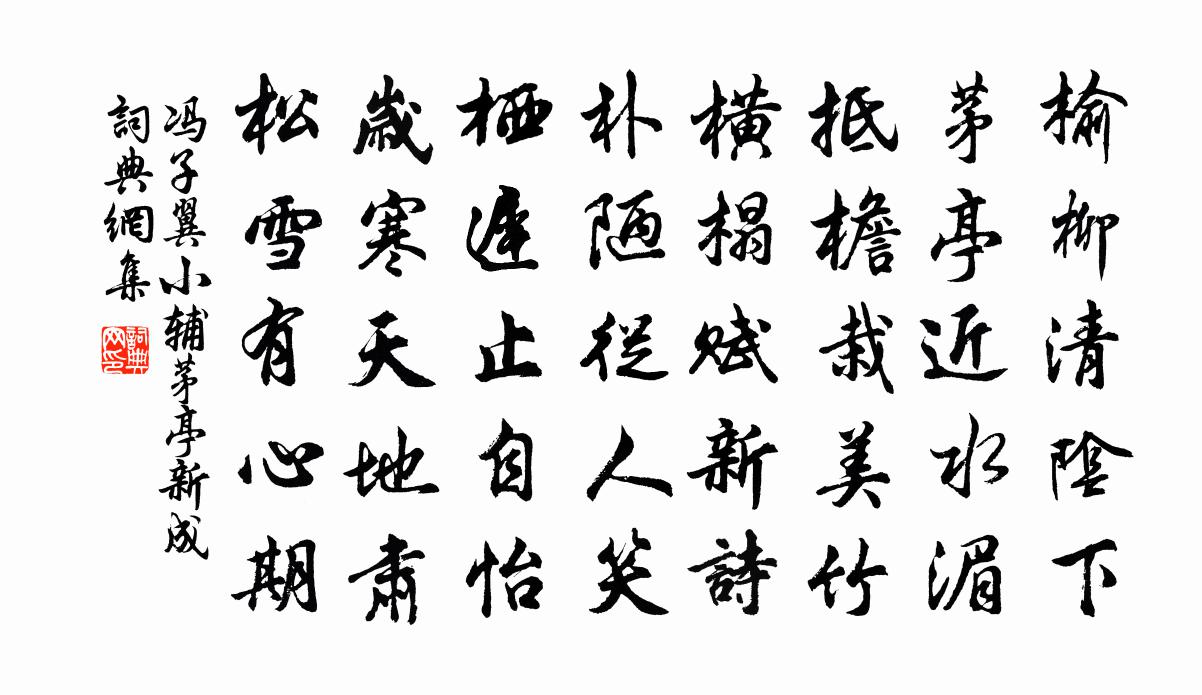 榆柳清陰下
茅亭近水湄
抵檐栽美竹
橫榻賦新詩
朴陋從人笑
栖遲止自怡
歲寒天地肅
松雪有心期
冯子翼小辅茅亭新成
詞典網集
詞典网印